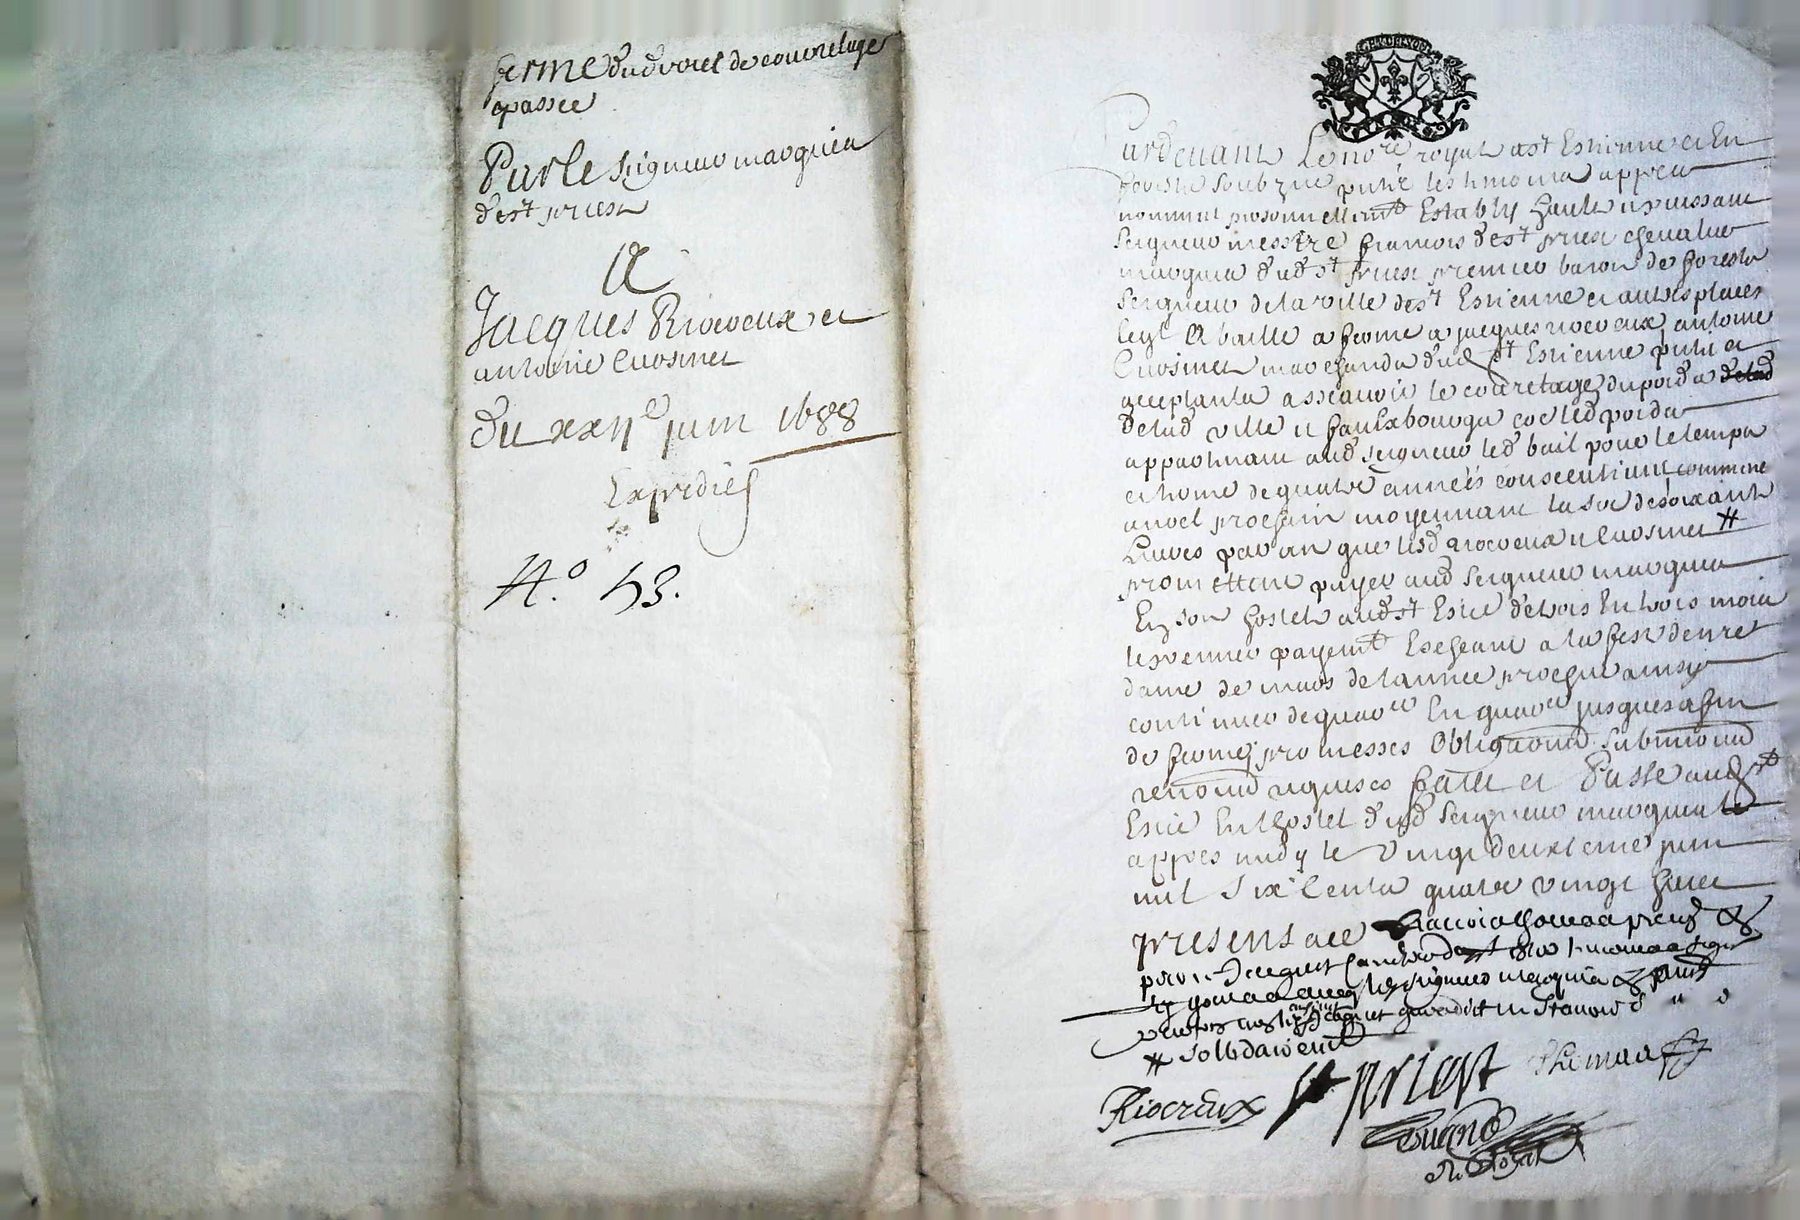 ferme dud droict de courretage
passee
Par le seigneur marquis
de st priest
A
Jacques Riocreux et
antoine Crosmet
Du xxiie juin 1688
Expediés
N.o 53.
GEN DE LYON
Pardevant le nore royal a st Estienne en
forests soubzne putz les tesmoins appres
nommes personnellemt Estably hault et puissant
seigneur messire francois de st priest chevalier
marquis dud st priest premier baron de forests
seigneur de la ville de st Estienne et autres places
leql A baille a ferme a jacques riocreux antoine
Crosmet marchands dud st Estienne putz et
acceptants assçavoir le courretage du poids
de lad ville et faulxbourgs led poids
appartenant aud seigneur led bail pour le temps
et terme de quatre années consecutives commence
a noel prochain moyennant la soe de soixante
Livres par an que lesd riocreux et Crosmet #
promettent payer aud seigneur marquis
En son hostel aud st Esne de trois En trois mois
le premier payemt Escheant a la feste de nre
dame de mars de l'annee prochne ainsy
continuer de quarer En quarer jusques a fin
de ferme promesses obligaons submons
renons requises fait et Passe aud st
Esne En l'hostel dud seigneur marquis le
appres midy le Vingt deuxieme juin
mil six Cents quatre vingt huict
presens me
# sollidairemt
Riocreux st priest Thomas
Durand
No Royal